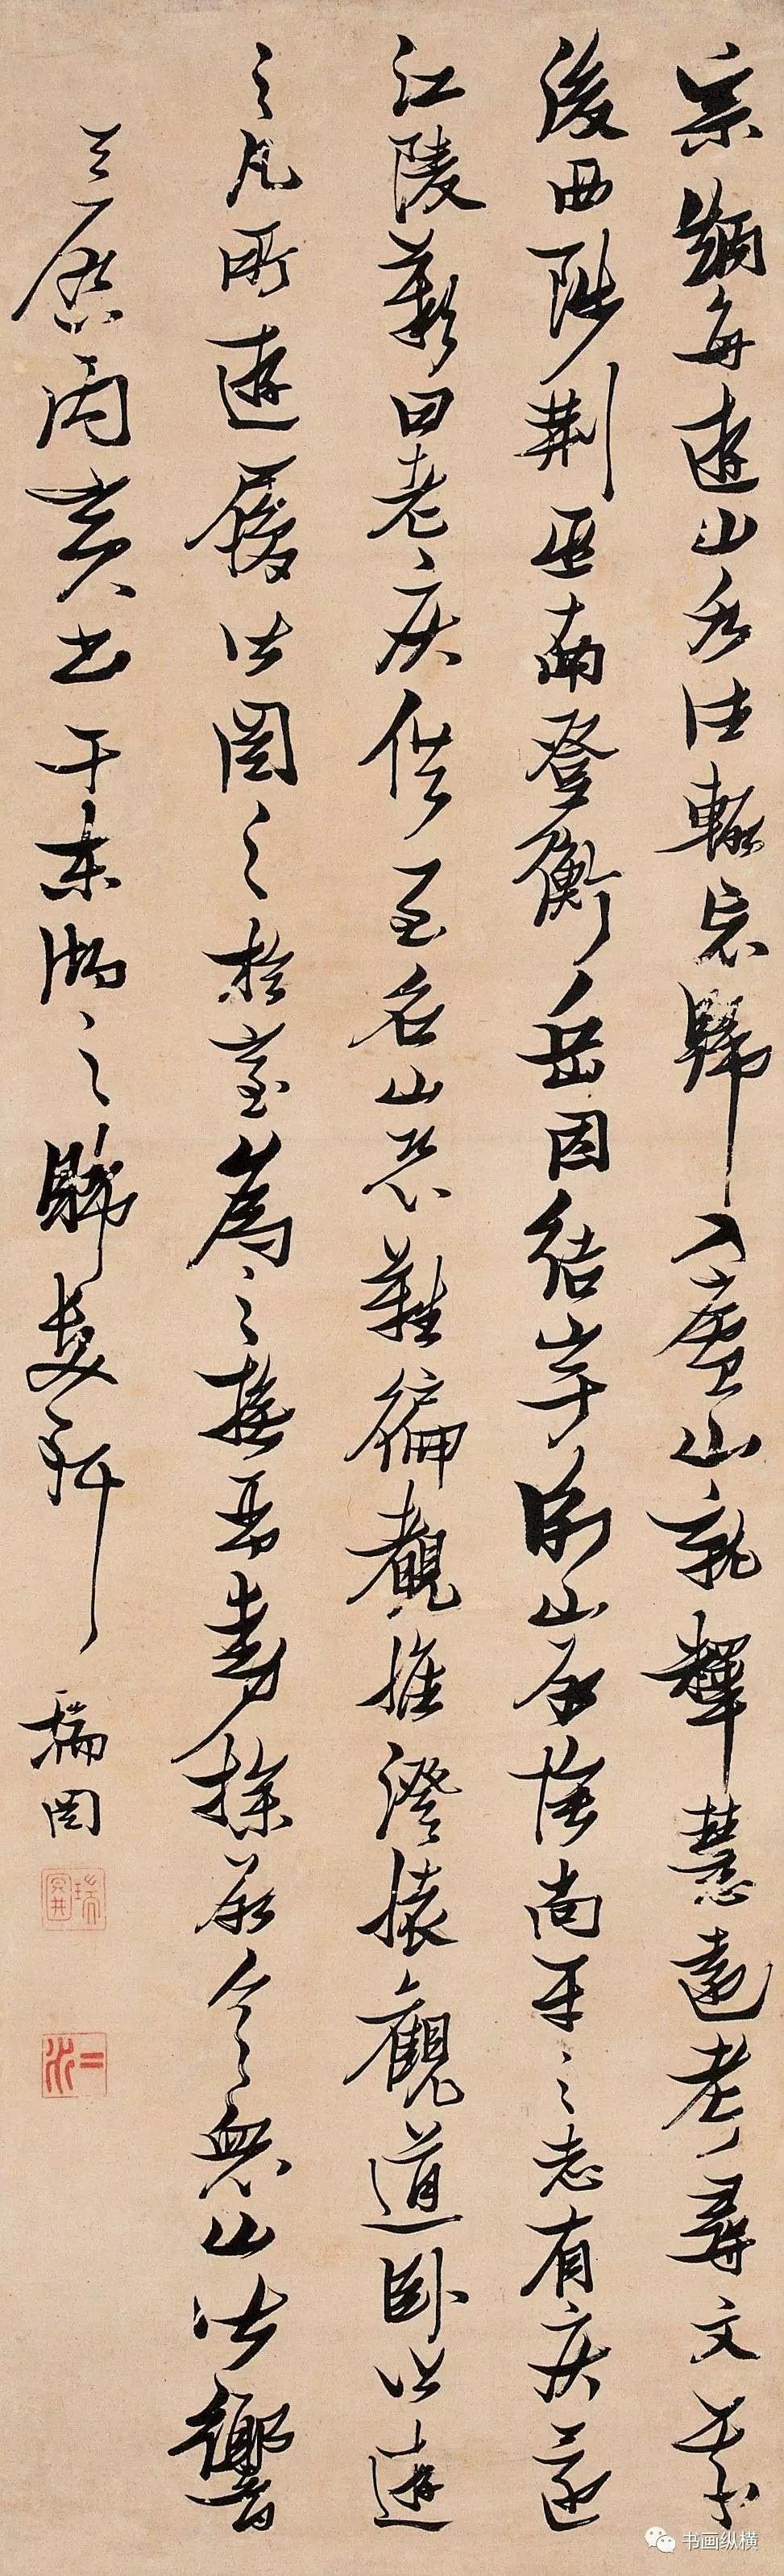 宗炳每遊山水往輒忘歸入廬山就釋慧遠考尋文義
後西陟荆巫南登衡岳因結宇衡山欲懷尚平之志有疾還
江陵歎曰老疾俱至名山恐難徧覩惟澄懷觀道臥以遊
之凡所遊履皆圖之於室為之撫琴動操欲令衆山皆響
天啓丙寅書于東湖之歸
瑞圖
瑞圖
二水
书画纵横